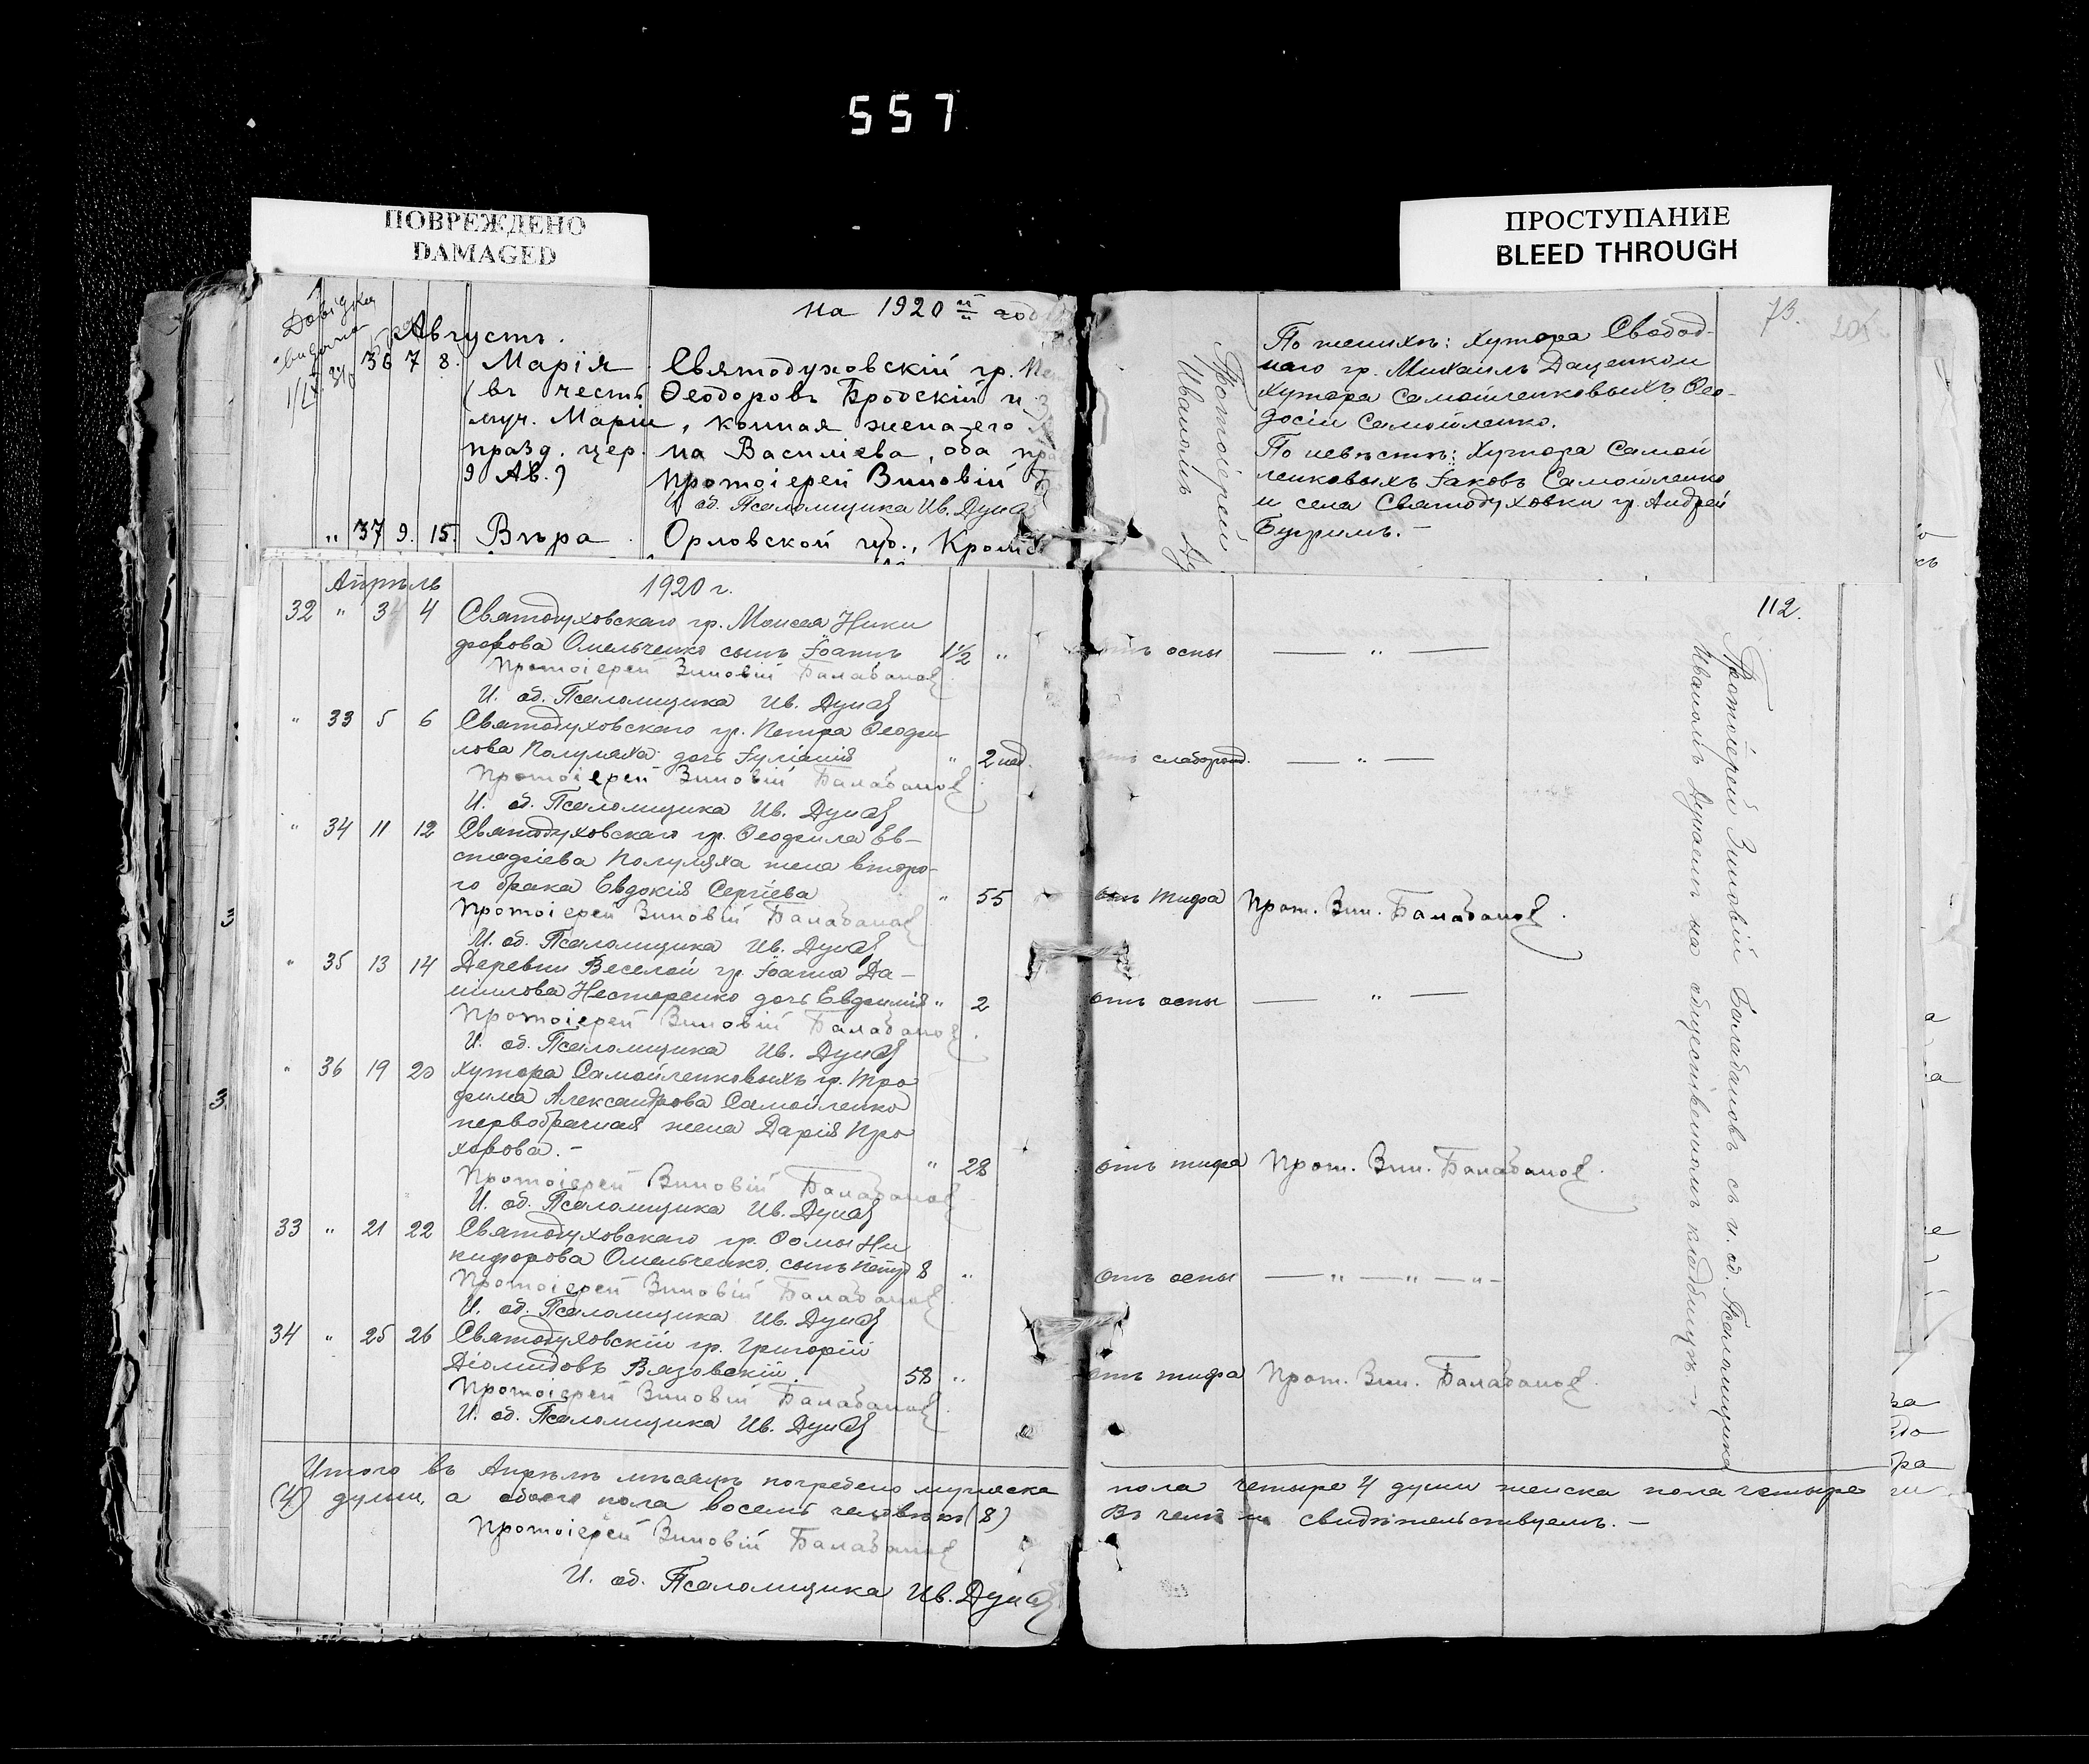 557
ПОВРЕЖДЕНО
DAMAGED
ПРОСТУПАНИЕ
BLEED THROUGH
на 1920 й год
Августъ.
36 7 8. Марія Святодуховскій гр.
(въ честь Ѳеодоровъ Бродскій и
муч. Маріи, конная жена его
празд. цер. на Василіева, оба
9 Ав.) протоіерей Зиновій
И. об. Псаломщика Ив. Дун
" 37 9. 15. Вѣра Орловской губ., Кромс
73.
205.
По женихѣ: хутора Свобод-
наго гр. Михаилъ Даценко и
хутора Самойленковыхъ Ѳео-
досій Самойленко.
По невѣстѣ: Хутора Самой
ленковыхъ Іаковъ Самойленко
и села Святодуховки гр. Андрей
Бугримъ.-
Протоіерей
Иваномъ
Апрѣль 1920 г.
32 " 3 4 Святодуховскаго гр. Моисея Ники
форова Омельченко сынъ Іоаннъ 1½ " отъ оспы — " —
Протоіерей Зиновій Балабановъ
И. об. Псаломщика Ив. Дунаевъ
" 33 5 6 Святодуховскаго гр. Петра Ѳеофи
лова Полуляха дочь Іуліанія " 2 нед. слаборожд. — " —
Протоіерей Зиновій Балабановъ
И. об. Псаломщика Ив. Дунаевъ
" 34 11 12 Святодуховскаго гр. Ѳеофила Ев-
стафіева Полуляха жена второ-
го брака Евдокія Сергіева " 55 отъ тифа Прот. Зин. Балабановъ.
Протоіерей Зиновій Балабановъ
И. об. Псаломщика Ив. Дунаевъ
" 35 13 14 Деревни Веселой гр. Іоанна Да-
ніилова Нестеренко дочь Евфимія " 2 отъ оспы — " —
Протоіерей Зиновій Балабановъ.
И. об. Псаломщика Ив. Дунаевъ
" 36 19 20 хутора Самойленковыхъ гр. Тро
фима Александрова Самойленко
первобрачная жена Дарія Про
хорова.- " 28 отъ тифа Прот. Зин. Балабановъ.
Протоіерей Зиновій Балабановъ
И. об. Псаломщика Ив. Дунаевъ
33 " 21 22 Святодуховскаго гр. Ѳомы Ни
кифорова Омельченко, сынъ Петръ 8 " отъ оспы — " — " — " -
Протоіерей Зиновій Балабановъ
И. об. Псаломщика Ив. Дунаевъ
34 " 25 26 Святодуховскій гр. Григорій
Діомидовъ Вязовскій. 58 " отъ тифа Прот. Зин. Балабановъ.
Протоіерей Зиновій Балабановъ
И. об. Псаломщика Ив. Дунаевъ
112.
Протоіерей Зиновій Балабановъ съ и. об. Псаломщика
Иваномъ Дунаемъ на общественномъ кладбищѣ.-
Итого въ Апрѣлѣ мѣсяцѣ погребено мужеска пола четыре 4 души женска пола четыре
(4) души, а обоего пола восемь человѣкъ (8) Въ чемъ и свидѣтельствуемъ.-
Протоіерей Зиновій Балабановъ
И. об. Псаломщика Ив. Дунаевъ